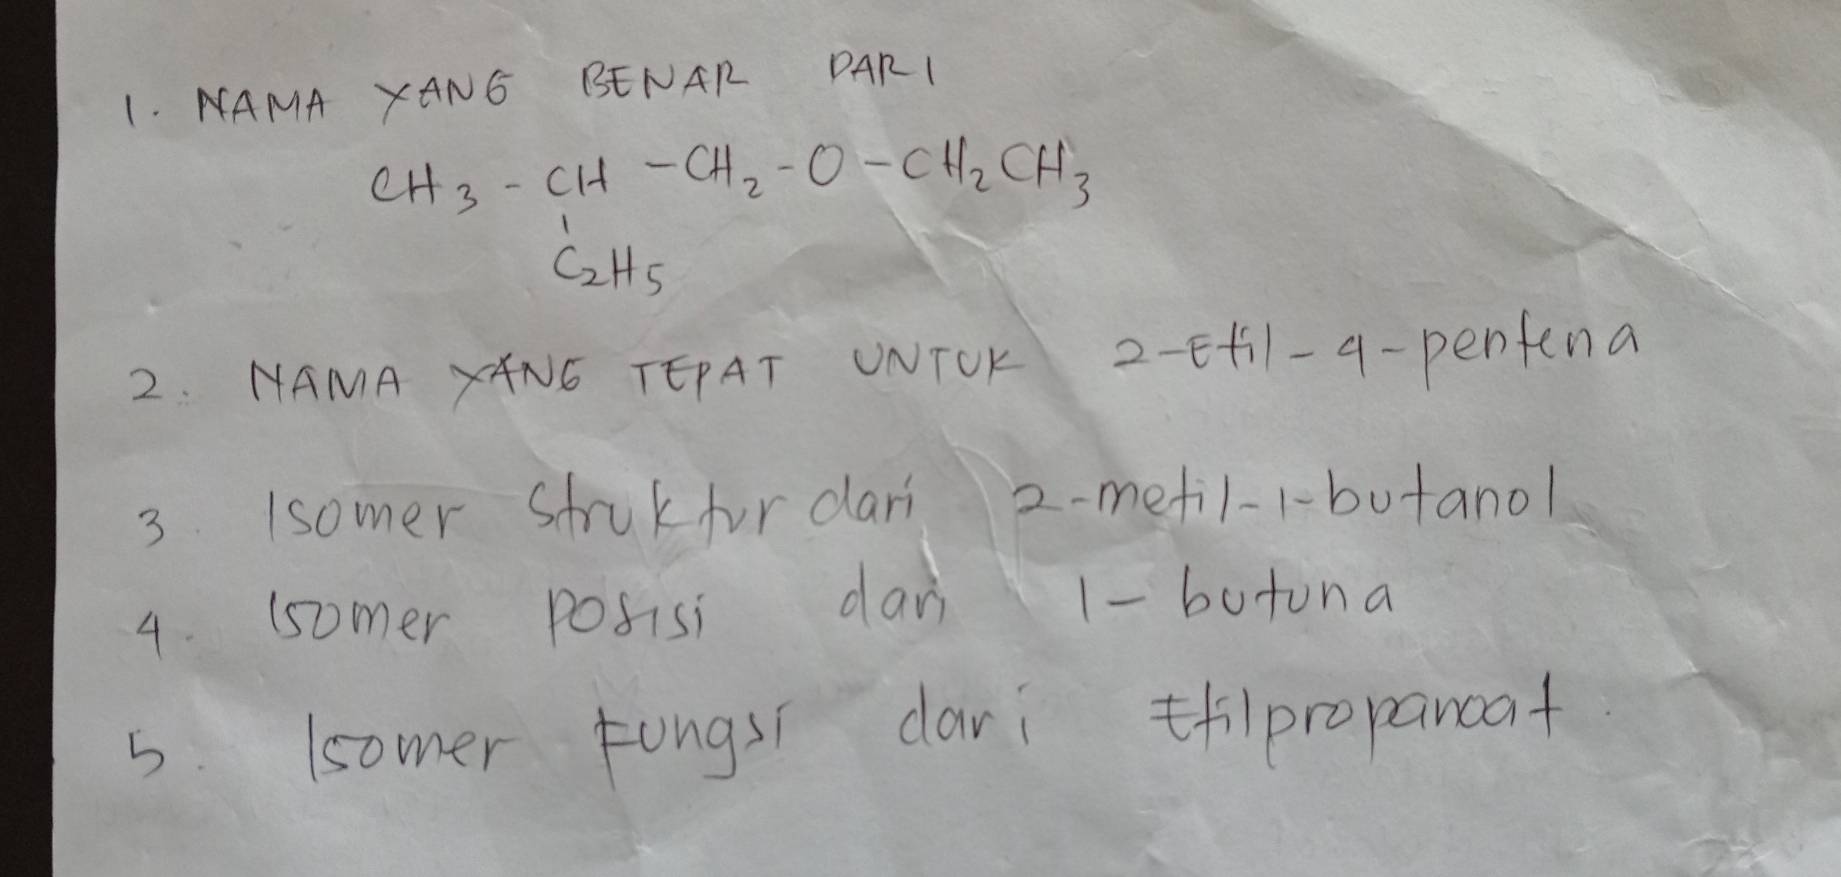 1. NAMA YANG BENAR DARI
CH3 - CH - CH2 - O - CH2 CH3
C2H5
2. NAMA YANG TEPAT UNTUK 2-Etil-4-pentena
3. Isomer Struktur dari 2-metil-1-butanol
4. Isomer Posisi dari 1-butuna
5. Isomer Fungsi dari Etilpropanoat